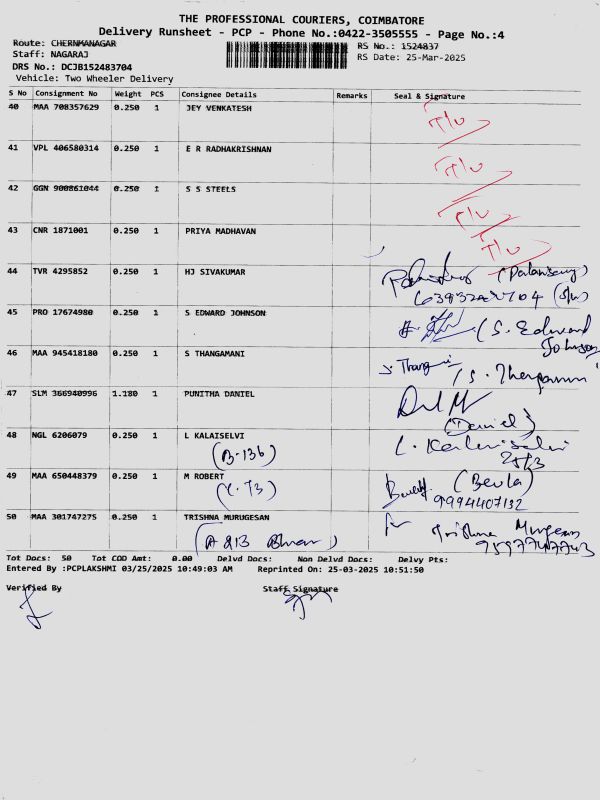 THE PROFESSIONAL COURIERS, COIMBATORE
Delivery Runsheet - PCP - Phone No.:0422-3505555 - Page No.:4
Route: CHERNMANAGAR
RS No.: 1524837
Staff: NAGARAJ
RS Date: 25-Mar-2025
DRS No.: DCJB152483704
Vehicle: Two Wheeler Delivery
S No Consignment No Weight PCS Consignee Details Remarks Seal & Signature
40 MAA 708357629 0.250 1 JEY VENKATESH
41 VPL 406580314 0.250 1 E R RADHAKRISHNAN
42 GGN 900861044 0.250 1 S S STEELS
43 CNR 1871001 0.250 1 PRIYA MADHAVAN
44 TVR 4295852 0.250 1 HJ SIVAKUMAR
45 PRO 17674980 0.250 1 S EDWARD JOHNSON (S. Edward Johnson
46 MAA 945418180 0.250 1 S THANGAMANI
47 SLM 366940996 1.180 1 PUNITHA DANIEL
(Daniel)
48 NGL 6206079 0.250 1 L KALAISELVI L. Kalaiselvi
(B-136) 25/3
49 MAA 650448379 0.250 1 M ROBERT (Beula)
9994407132
50 MAA 301747275 0.250 1 TRISHNA MURUGESAN for Trishna Murugesan
Tot Docs: 50 Tot COD Amt: 0.00 Delvd Docs: Non Delvd Docs: Delvy Pts:
Entered By :PCPLAKSHMI 03/25/2025 10:49:03 AM Reprinted On: 25-03-2025 10:51:50
Verified By Staff Signature